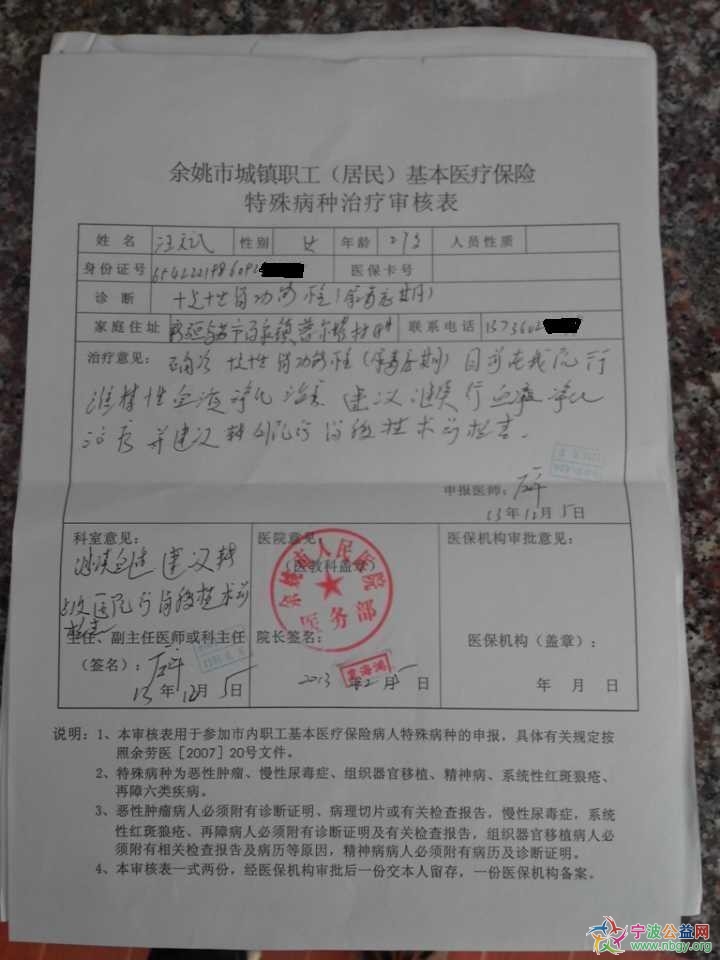 余姚市城镇职工（居民）基本医疗保险
特殊病种治疗审核表
姓名 性别 女 年龄 27岁 人员性质
身份证号 医保卡号
诊断 慢性肾功能不全（尿毒症期）
家庭住址 联系电话 1373602
治疗意见：确诊 慢性肾功能不全（尿毒症期）目前在我院行
维持性血液净化治疗 建议继续行血液净化
治疗 并建议转外院行肾移植术前检查.
申报医师：
13年12月5日
科室意见： 医院意见： 医保机构审批意见：
继续血透 建议转
上级医院行肾移植术前
检查
（医教科盖章）
余姚市人民医院
医务部
主任、副主任医师或科主任 院长签名： 医保机构（盖章）：
（签名）：
13年12月5日 2013年12月5日 年 月 日
说明：1、本审核表用于参加市内职工基本医疗保险病人特殊病种的申报，具体有关规定按
照余劳医［2007］20号文件。
2、特殊病种为恶性肿瘤、慢性尿毒症、组织器官移植、精神病、系统性红斑狼疮、
再障六类疾病。
3、恶性肿瘤病人必须附有诊断证明、病理切片或有关检查报告，慢性尿毒症，系统
性红斑狼疮、再障病人必须附有诊断证明及有关检查报告，组织器官移植病人必
须附有相关检查报告及病历等原因，精神病病人必须附有病历及诊断证明。
4、本审核表一式两份，经医保机构审批后一份交本人留存，一份医保机构备案。
宁波公益网
www.nbgy.org